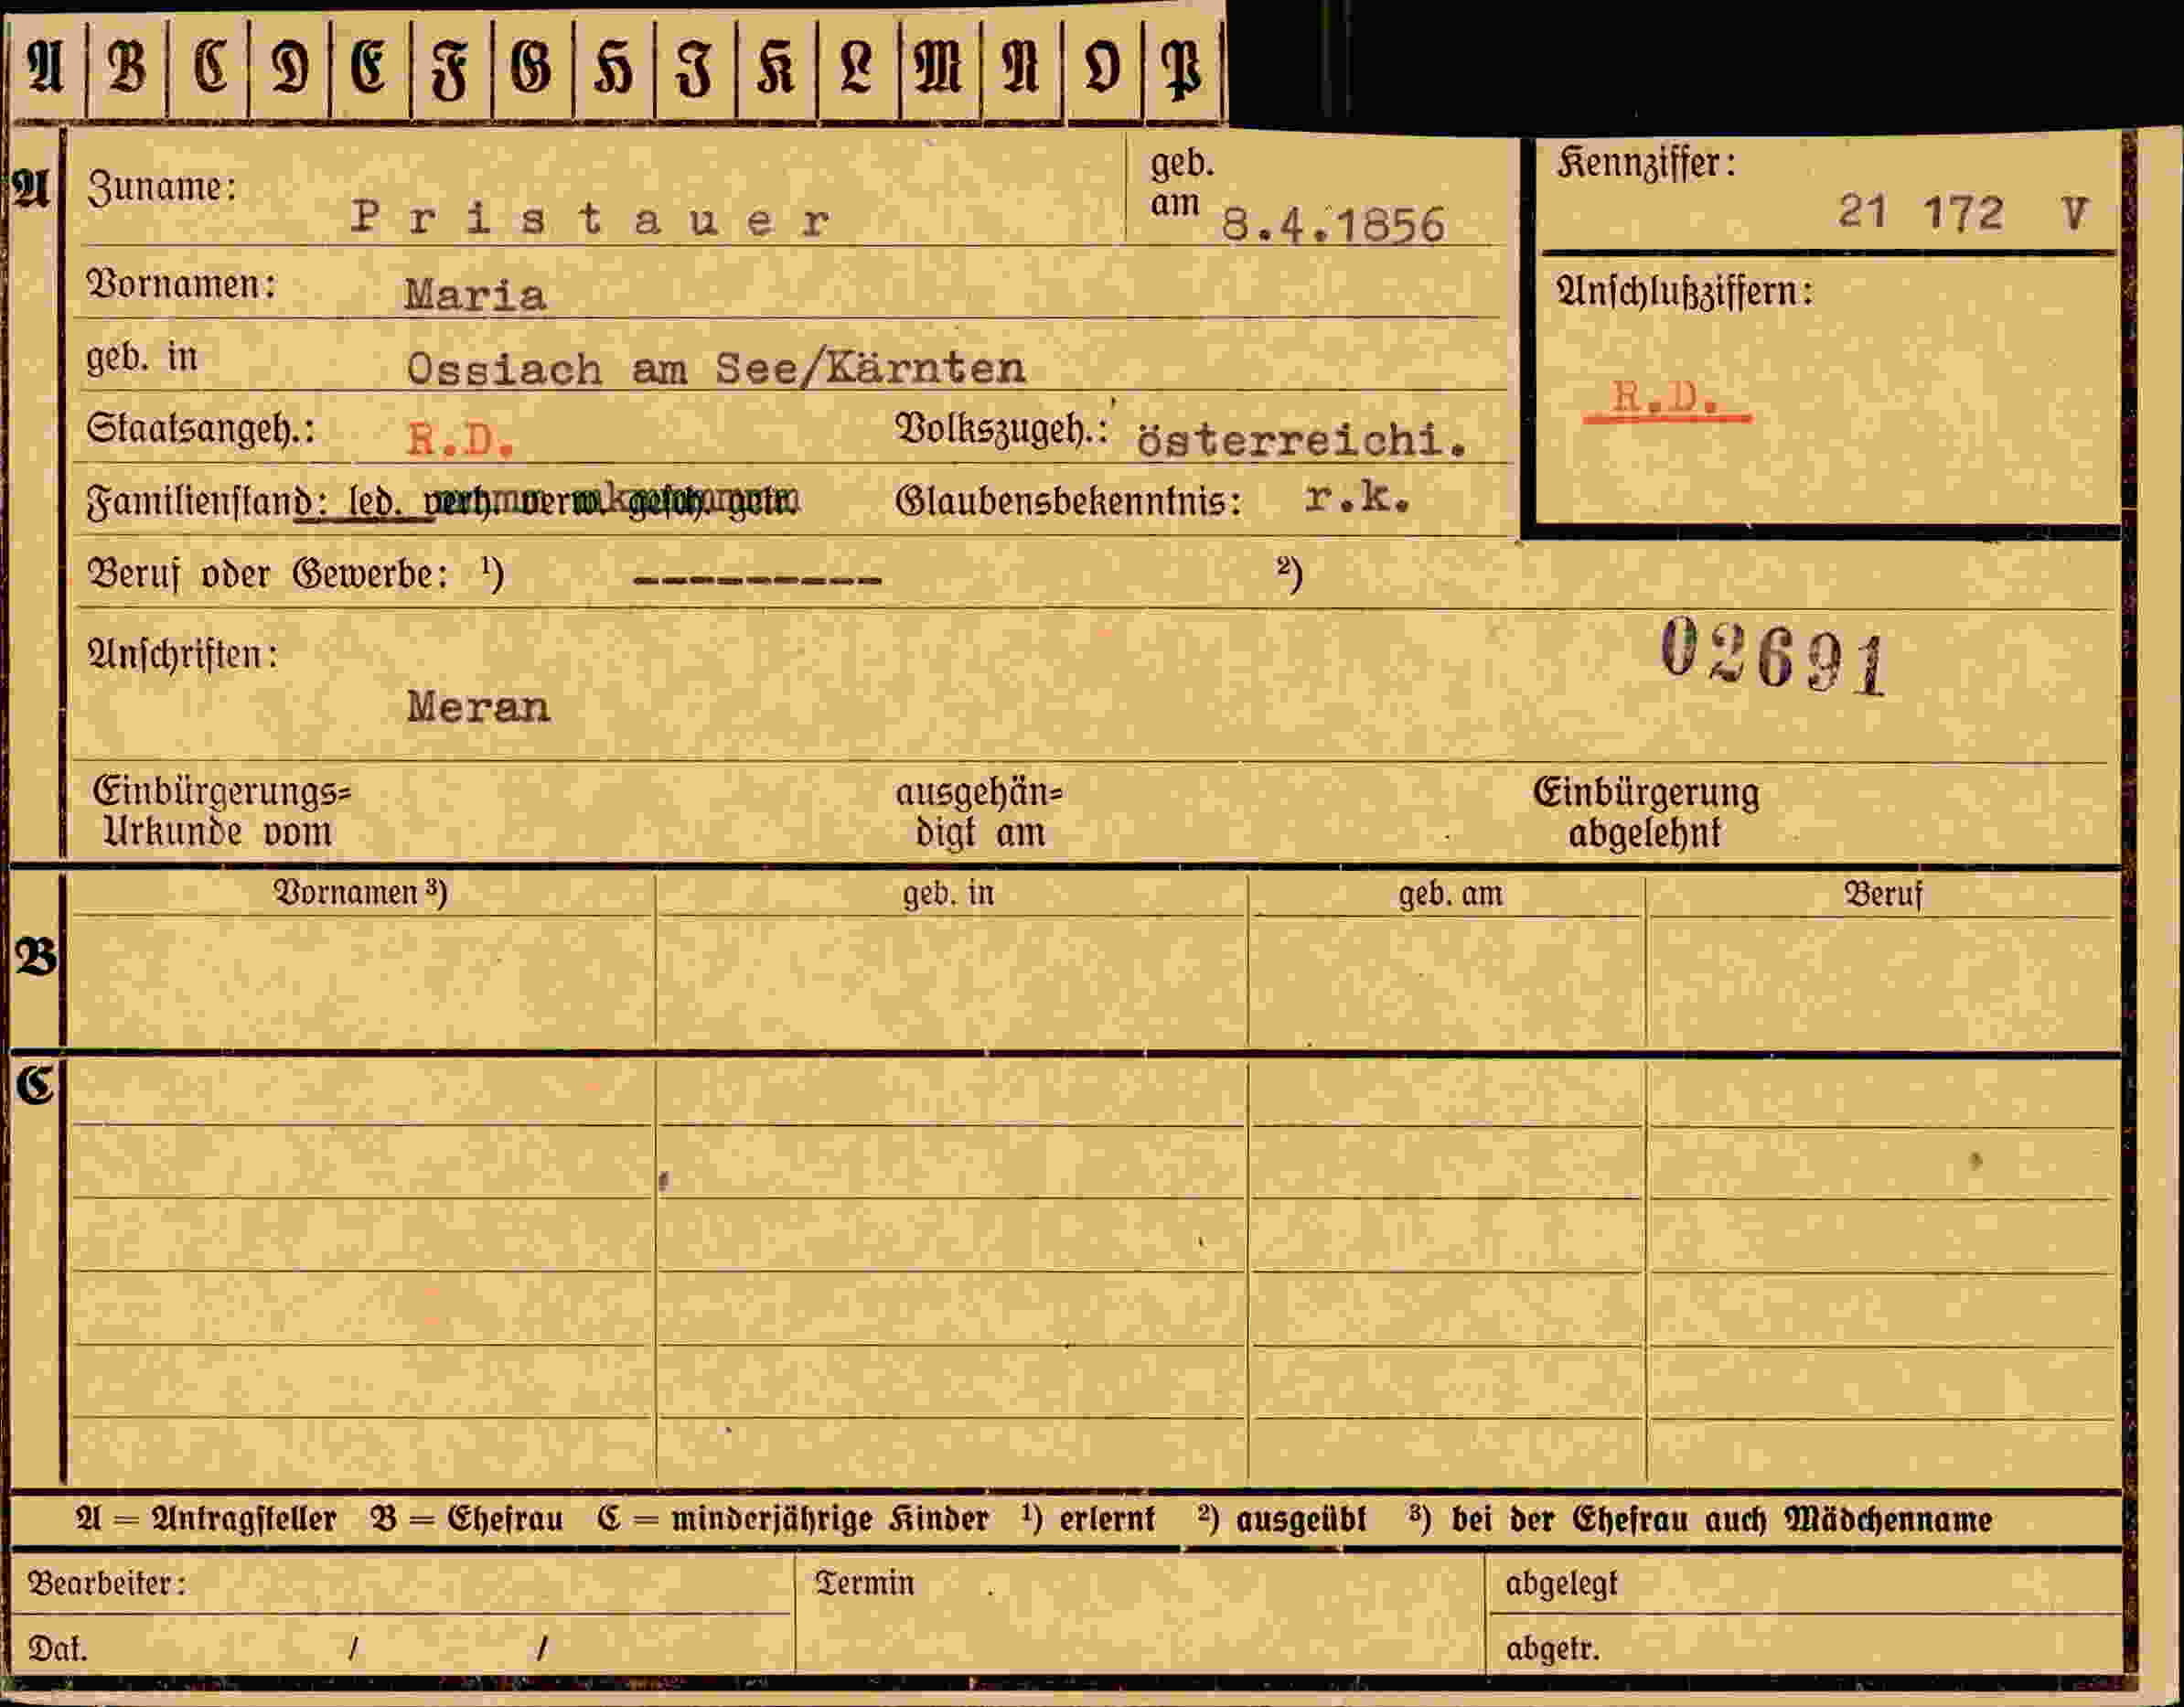 A B C D E F G H J K L M N O P
A Zuname: Pristauer geb. am 8.4.1856 Kennziffer: 21 172 V
Vornamen: Maria Anschlußziffern:
geb. in Ossiach am See/Kärnten R.D.
Staatsangeh.: R.D. Volkszugeh.: österreichi.
Familienstand: led. Glaubensbekenntnis: r.k.
Beruf oder Gewerbe: ¹) --------- ²)
Anschriften: 02691
Meran
Einbürgerungs= ausgehän= Einbürgerung
Urkunde vom digt am abgelehnt
Vornamen ³) geb. in geb. am Beruf
B
C
A = Antragsteller B = Ehefrau C = minderjährige Kinder ¹) erlernt ²) ausgeübt ³) bei der Ehefrau auch Mädchenname
Bearbeiter: Termin abgelegt
Dat. / / abgetr.